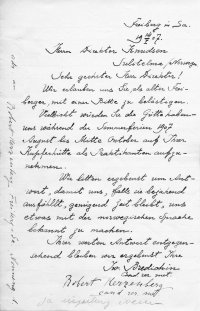 Freiberg in Sa.
Herrn Direktor Knudsen
Sulitelma, Norwegen
Sehr geehrter Herr Direktor!
Wir erlauben uns Sie als alter Frei-
berger mit einer Bitte zu belästigen.
Vielleicht würden Sie die Güte haben
uns während der Sommerferien 1907
August bis Mitte Oktober auf Ihrer
Kupferhütte als Praktikanten aufzu-
nehmen.
Wir bitten ergebenst um Ant-
wort, damit uns, falls sie bejahend
ausfällt, genügend Zeit bleibt, uns
etwas mit der norwegischen Sprache
bekannt zu machen.
Ihrer werten Antwort entgegen-
sehend bleiben wir ergebenst Ihre
Iw. Bredichin
cand. rer. met.
Robert Herzenberg
cand. rer. met.